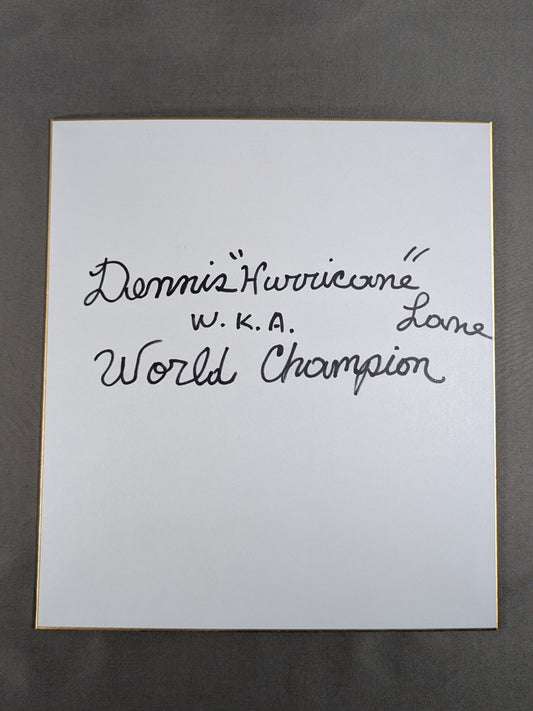 Dennis "Hurricane"
Lane
W.K.A.
World Champion